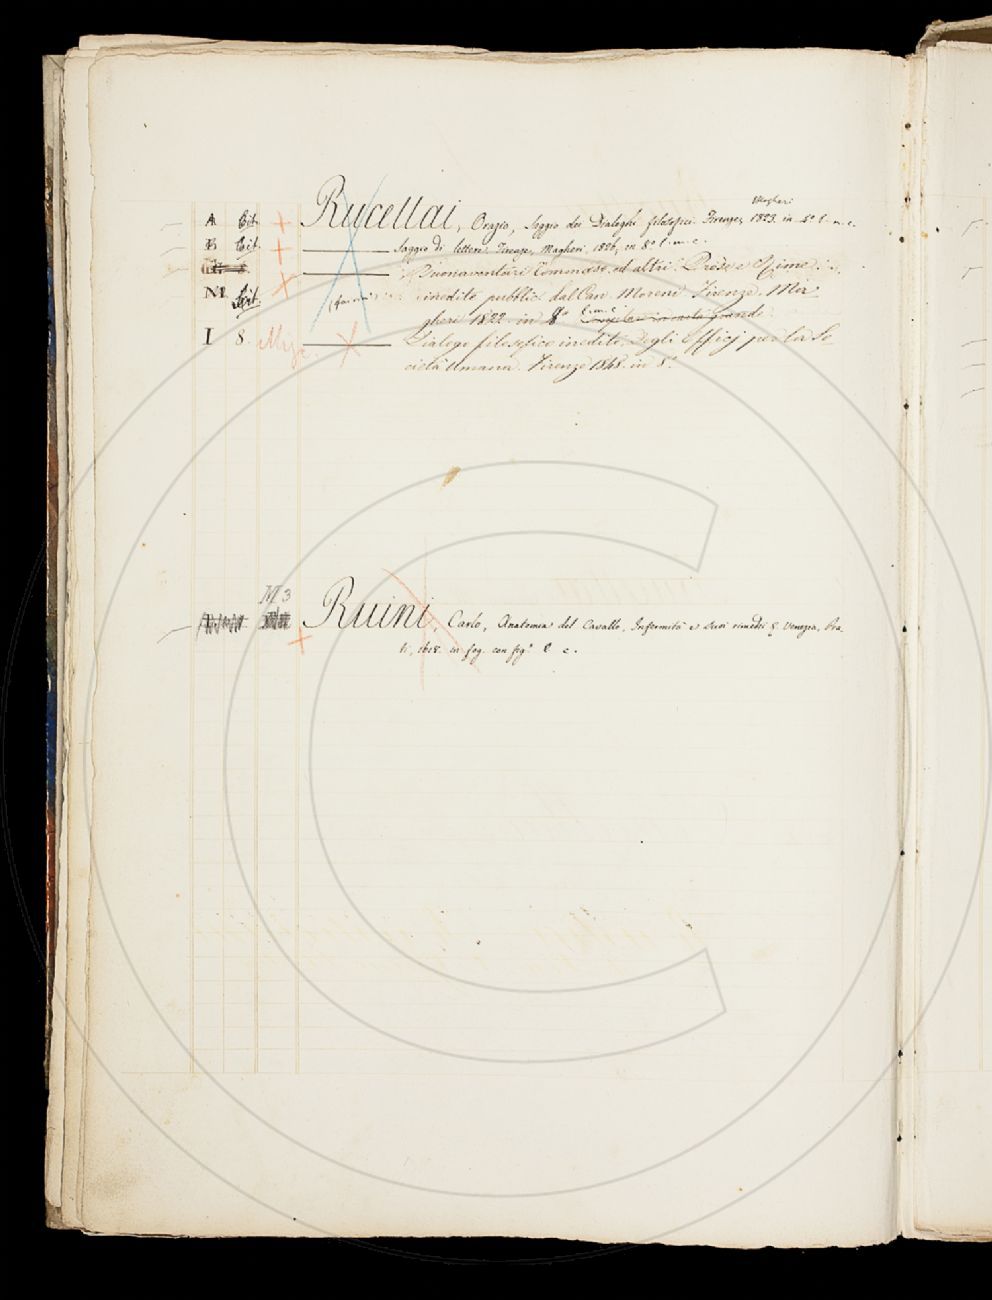 Magheri
A Bit. Rucellai, Orazio, Saggio dei Dialoghi filosofici. Firenze, 1823. in 8º l. m. c.
B Bit. Saggio di lettere. Firenze, Magheri 1826, in 8º l. m. c.
Buonaventuri Tommaso, ed altri. Prose e Rime
M inedite pubblic. dal Can. Moreni Firenze. Ma
gheri 1822. in 8º l. m. c.
I 8. Dialogo filosofico inedito. Degli Officj per la So
cietà Umana. Firenze 1848. in 8º
M 3
Ruini, Carlo, Anatomia del Cavallo, Infermità e suoi rimedii &. Venezia, Pra
ti, 1618. in fog. con fig.